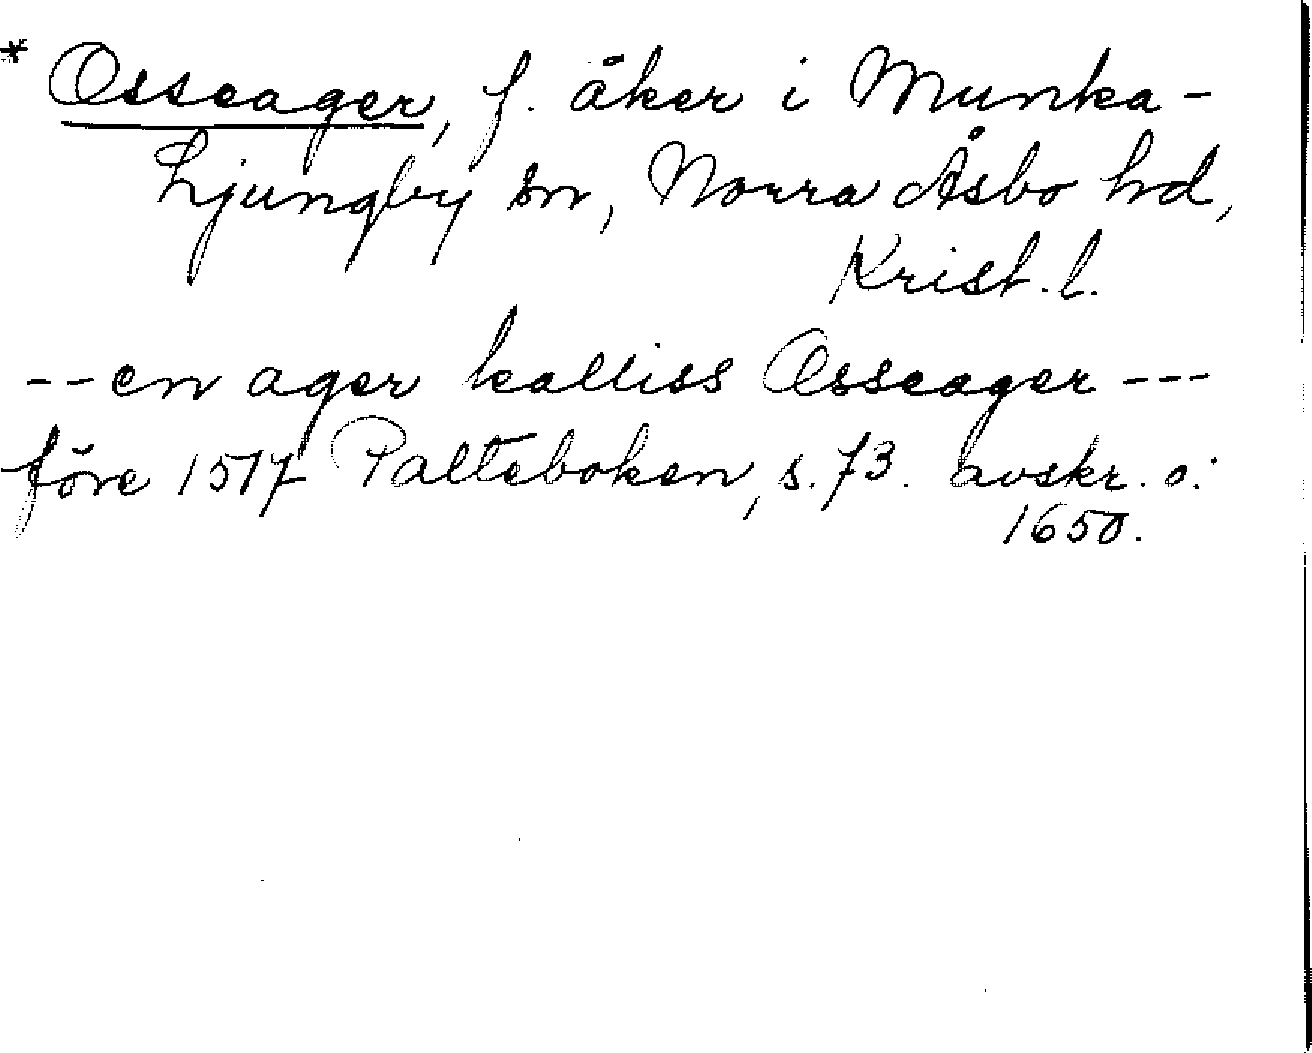 * Osseager, f. åker i Munka-
Ljungby sn, Norra Åsbo hd,
Krist. l.
-- en ager kalliss Osseager ---
före 1517 Palteboken, s. 73. avskr. o:
1650.